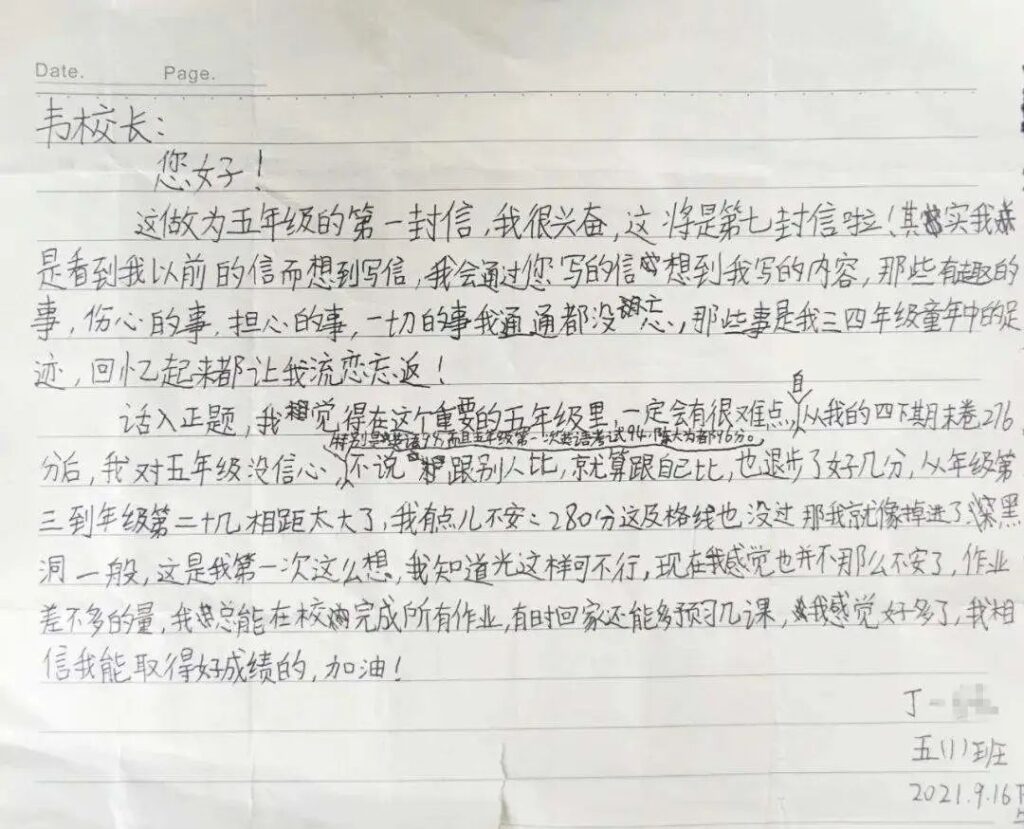 Date. Page.
韦校长:
您好!
这做为五年级的第一封信,我很兴奋,这将是第七封信啦!其实我
是看到我以前的信而想到写信,我会通过您写的信想到我写的内容,那些有趣的
事,伤心的事,担心的事,一切的事我通通都没忘,那些事是我三四年级童年中的足
迹,回忆起来都让我流恋忘返!
话入正题,我觉得在这个重要的五年级里,一定会有很难点,自从我的四下期末卷276
英语98,而且五年级第一次英语考试94,陈大为都96分。
分后,我对五年级没信心,不说跟别人比,就算跟自己比,也退步了好几分,从年级第
三到年级第二十几相距太大了,我有点儿不安:280分这及格线也没过那我就像掉进了深黑
洞一般,这是我第一次这么想,我知道光这样可不行,现在我感觉也并不那么不安了,作业
差不多的量,我总能在校完成所有作业,有时回家还能多预习几课,我感觉好多了,我相
信我能取得好成绩的,加油!
丁一
五(1)班
2021.9.16